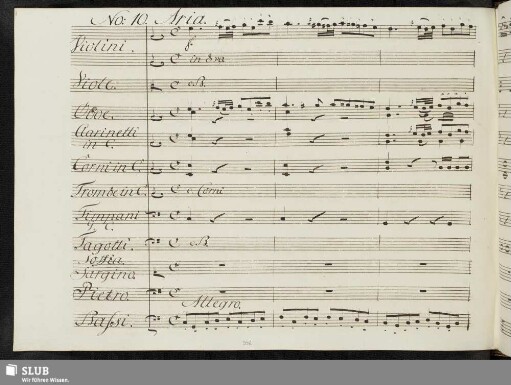 No: 10. Aria.
Violini.
f.
in 8va
Viole.
c.B.
Oboe.
Clarinetti
in C.
Corni in C.
Trombe in C.
c. Corni
Timpani
Fagotti.
c.B.
Sargino.
Pietro.
Allegro.
Bassi.
SLUB
Wir führen Wissen.